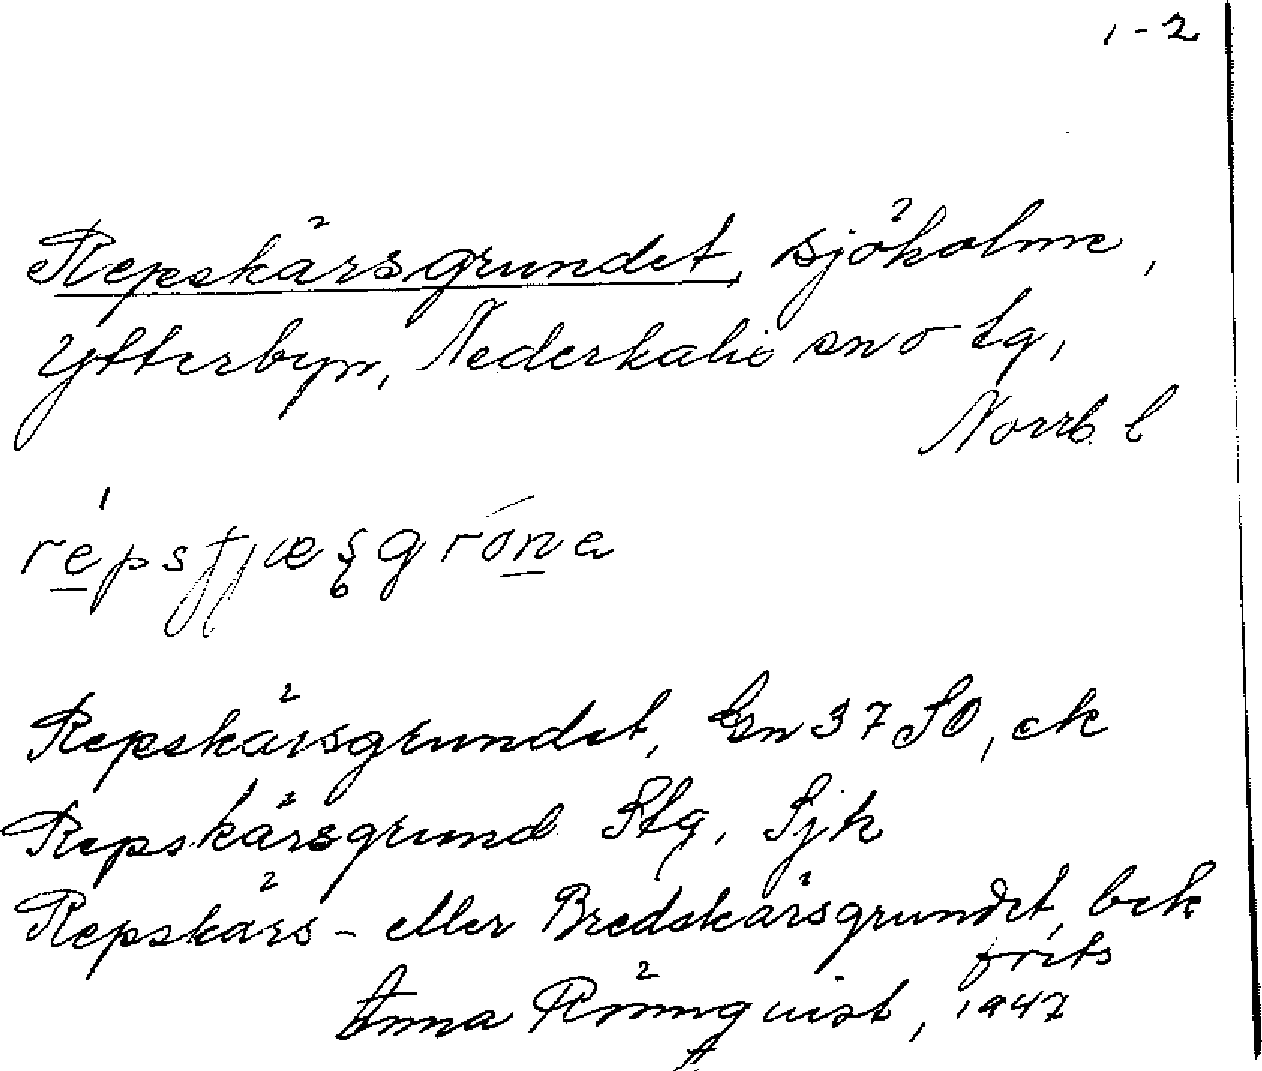 1-2
Repskärsgrundet, sjöholme,
Ytterbyn, Nederkalix sn o tg,
Norrb. l
Repskärsgrundet, Gn 37 SO, ek
Repskärsgrund Stg, Sjk
Repskärs- eller Bredskärsgrundet, bek
frits
Anna Rönnquist, 1947